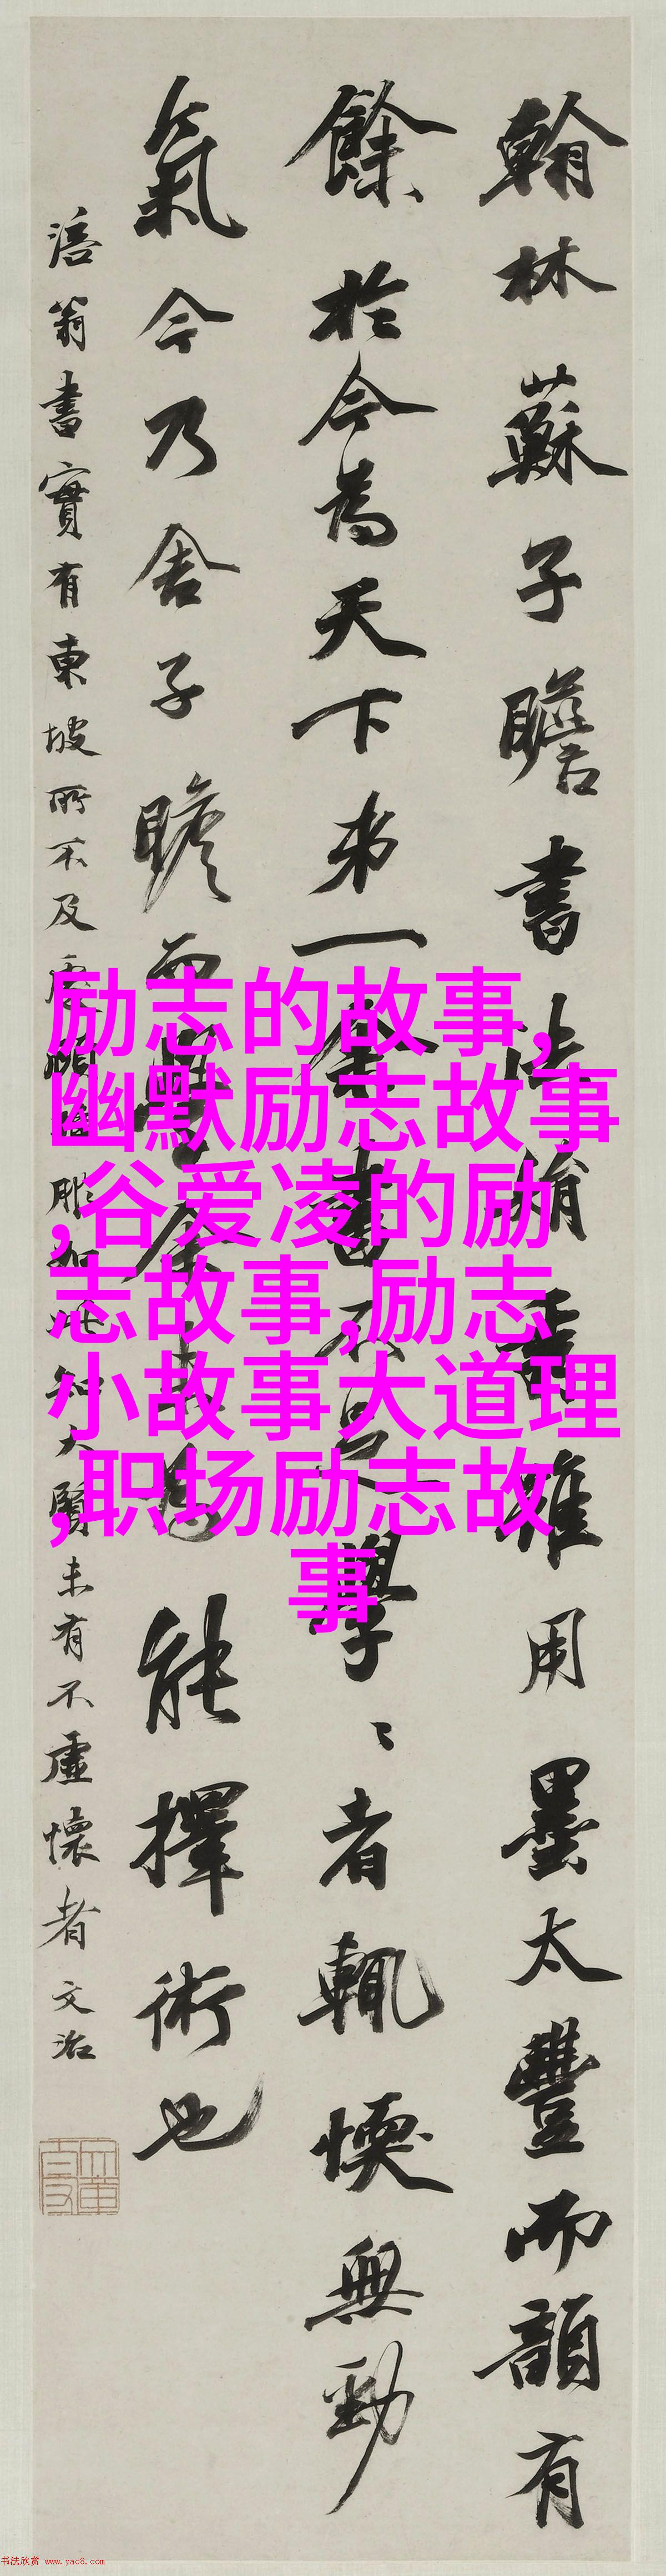 翰林蘇子瞻書法娟秀雖用墨太豐而韻有
餘於今為天下第一余書不足學學者輒愞無勁
氣今乃舍子瞻而學余未為能擇術也
涪翁書實有東坡所不及
服如此知大賢未有不虛懷者文治
励志的故事,
幽默励志故事
,谷爱凌的励
志故事,励志
小故事大道理
,职场励志故
事
书法欣赏 www.yac8.com